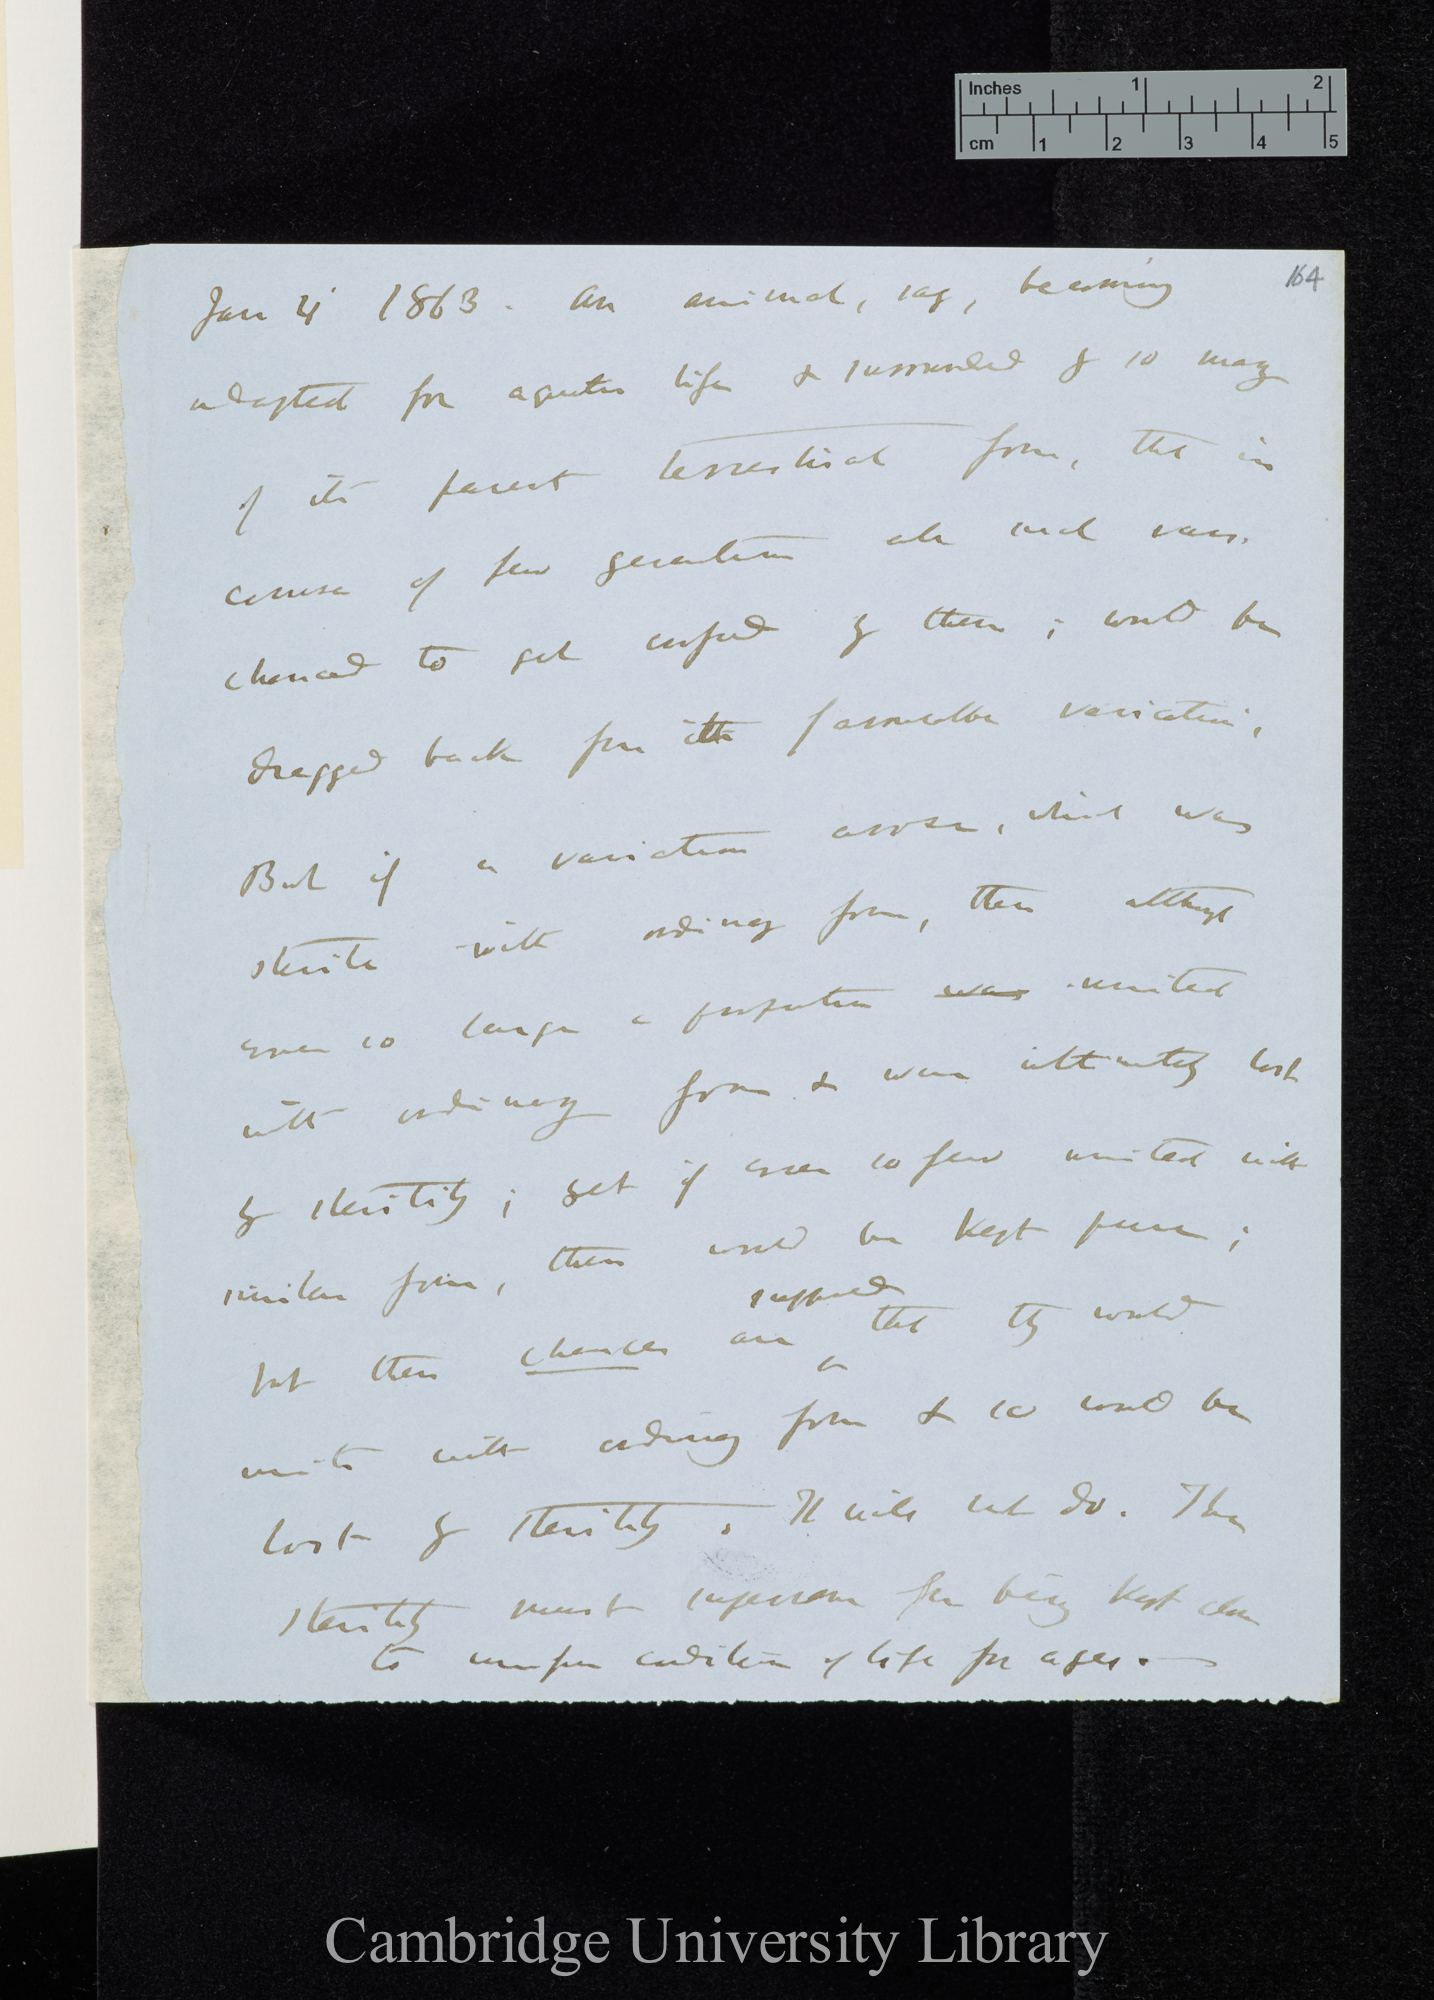 Inches 1 2
cm 1 2 3 4 5
164
Jan 4' 1863. An animal, say, becoming
adapted for aquatic life & surrounded by so many
of its parent terrestrial form, that in
course of few generations all
chanced to get by them; would be
dragged back from its favourable variation,
But if a variation arose, which was
sterile with ordinary form, then although
even so large a proportion was united
with ordinary form & were ultimately lost
by sterility; yet if even so few united with
similar form, these would be kept pure;
but then chances are supposed that they would
unite with ordinary form & so would be
lost by sterility. It will not do. The
sterility must supervene from being kept
to uniform condition of life for ages.—
Cambridge University Library